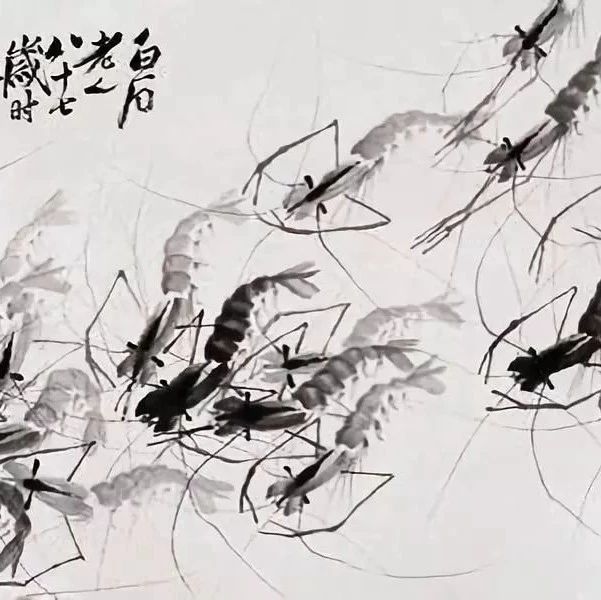 白石
老人
八十七
歲时